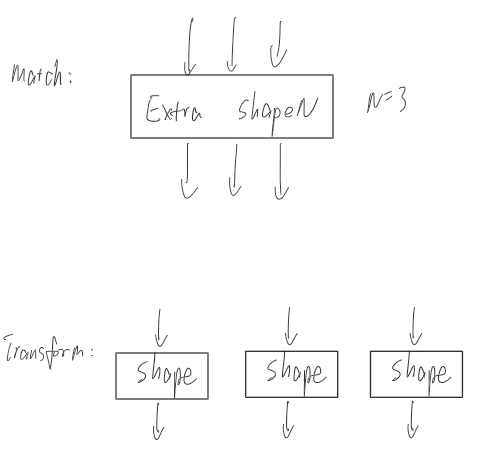 Match:
Extra ShapeN
N=3
Transform:
Shape
Shape
Shape